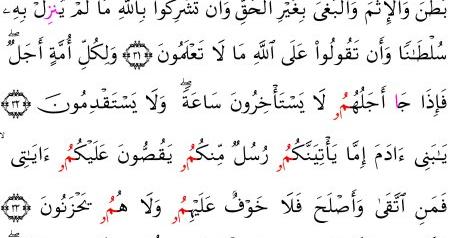 بَطَنَ وَالْإِثْمَ وَالْبَغْىَ بِغَيْرِ الْحَقِّ وَأَن تُشْرِكُوا۟ بِاللَّهِ مَا لَمْ يُنزِلْ بِهِۦ
سُلْطَـٰنًا وَأَن تَقُولُوا۟ عَلَى اللَّهِ مَا لَا تَعْلَمُونَ ۝٣١ وَلِكُلِّ أُمَّةٍ أَجَلٌ ۖ
فَإِذَا جَا أَجَلُهُمُۥ لَا يَسْتَأْخِرُونَ سَاعَةً ۖ وَلَا يَسْتَقْدِمُونَ ۝٣٢
يَـٰبَنِى ءَادَمَ إِمَّا يَأْتِيَنَّكُمُۥ رُسُلٌ مِّنكُمُۥ يَقُصُّونَ عَلَيْكُمُۥ ءَايَـٰتِى ۙ
فَمَنِ اتَّقَىٰ وَأَصْلَحَ فَلَا خَوْفٌ عَلَيْهِمُۥ وَلَا هُمُۥ يَحْزَنُونَ ۝٣٣